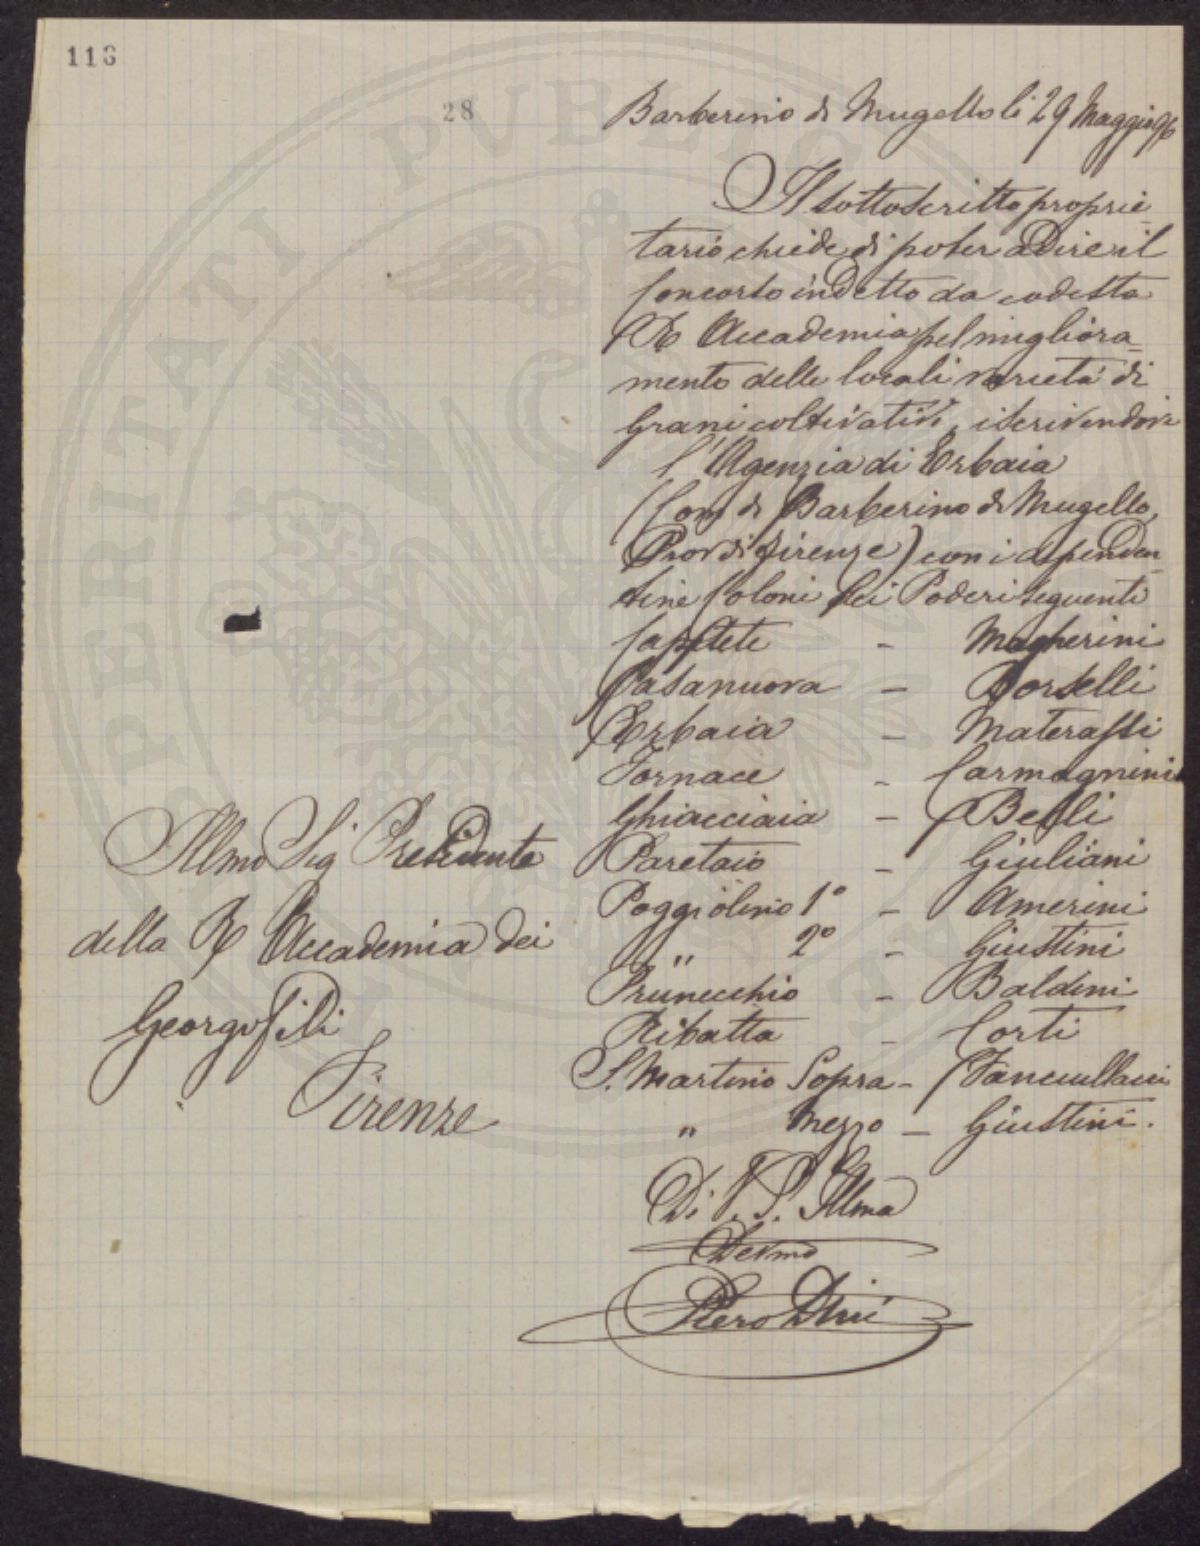 116
28
Barberino di Mugello li 29 Maggio 96
Il sottoscritto proprie=
tario chiede di poter adire il
Concorso indetto da codesta
R Accademia pel migliora=
mento delle locali varietà di
Grani coltivative, iscrivendovi
l'Agenzia di Erbaia
(Com di Barberino di Mugello,
Prov di Firenze) con i dipenden=
tine Coloni dei Poderi seguenti
Capetete - Magherini
Casanuova - Borselli
Erbaia - Materassi
Fornace - Carmagnini
Ghiacciaia - Belli
Paretaio - Giuliani
Poggiolino 1° - Amerini
" 2° - Giustini
Prunecchio - Baldini
Ribatta - Corti
S. Martino Sopra - Fanciullacci
" Mezzo - Giustini.
Di V. S. Illma
Devmo
Piero Dini
Illmo Sig Presidente
della R Accademia dei
Georgofili
Firenze
PERITATI PVBLIC